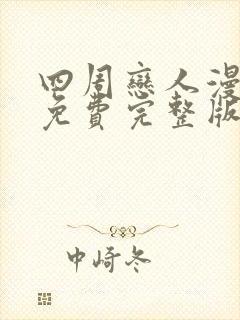 四周戀人漫
免費完整版
中崎冬